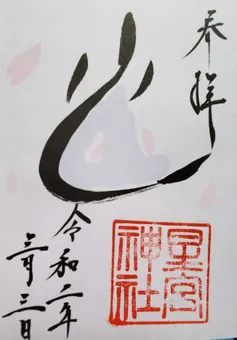 奉拝
心
星宮
神社
令和二年
三月三日